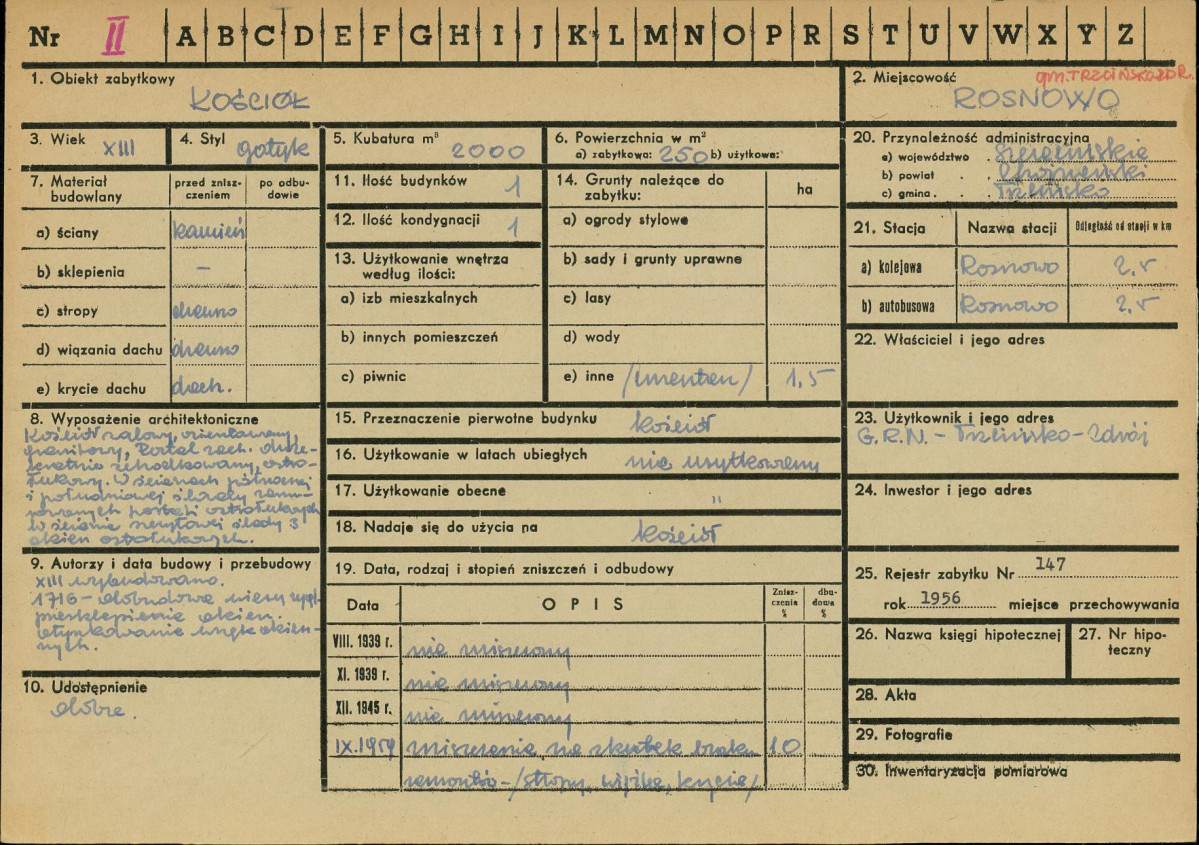 Nr II A B C D E F G H I J K L M N O P R S T U V W X Y Z
1. Obiekt zabytkowy
KOŚCIÓŁ
2. Miejscowość
gm. TRZCIŃSKO ZDR.
ROSNOWO
3. Wiek XIII
4. Styl gotyk
5. Kubatura m³ 2000
6. Powierzchnia w m²
a) zabytkowa: 250 b) użytkowa:
20. Przynależność administracyjna
a) województwo . Szczecińskie
b) powiat . . Chojneński
c) gmina . . Trzcińsko
7. Materiał budowlany
przed znisz-
czeniem
po odbu-
dowie
a) ściany kamień
b) sklepienia –
c) stropy drewno
d) wiązania dachu drewno
e) krycie dachu dach.
11. Ilość budynków 1
12. Ilość kondygnacji 1
13. Użytkowanie wnętrza
według ilości:
a) izb mieszkalnych
b) innych pomieszczeń
c) piwnic
14. Grunty należące do
zabytku:
ha
a) ogrody stylowe
b) sady i grunty uprawne
c) lasy
d) wody
e) inne /cmentarz/ 1,5
21. Stacja Nazwa stacji Odległość od stacji w km
a) kolejowa Rosnowo 2,5
b) autobusowa Rosnowo 2,5
22. Właściciel i jego adres
8. Wyposażenie architektoniczne
Kościół salowy, orientowany,
granitowy, Portal zach.
uskokowany, ostro-
łukowy. W ścianach północnej
i południowej ślady zamu-
rowanych portali ostrołukowych
W ścianie szczytowej ślady 3
okien ostrołukowych.
15. Przeznaczenie pierwotne budynku kościół
16. Użytkowanie w latach ubiegłych nie użytkowany
17. Użytkowanie obecne "
18. Nadaje się do użycia na kościół
23. Użytkownik i jego adres
G.R.N. – Trzcińsko-Zdrój
24. Inwestor i jego adres
9. Autorzy i data budowy i przebudowy
XIII wybudowano.
1716 – dobudowa wieży
przesklepienie okien.
otynkowanie wnęk okien-
nych.
10. Udostępnienie
dobre.
19. Data, rodzaj i stopień zniszczeń i odbudowy
Data OPIS Znisz-
czenia
%
dbu-
dowa
%
VIII. 1939 r. nie zniszczony
XI. 1939 r. nie zniszczony
XII. 1945 r. nie zniszczony
IX.1959 zniszczenie na skutek braku 10
remontów – /stropy, krycie/
25. Rejestr zabytku Nr 147
rok 1956 miejsce przechowywania
26. Nazwa księgi hipotecznej
27. Nr hipo-
teczny
28. Akta
29. Fotografie
30. Inwentaryzacja pomiarowa